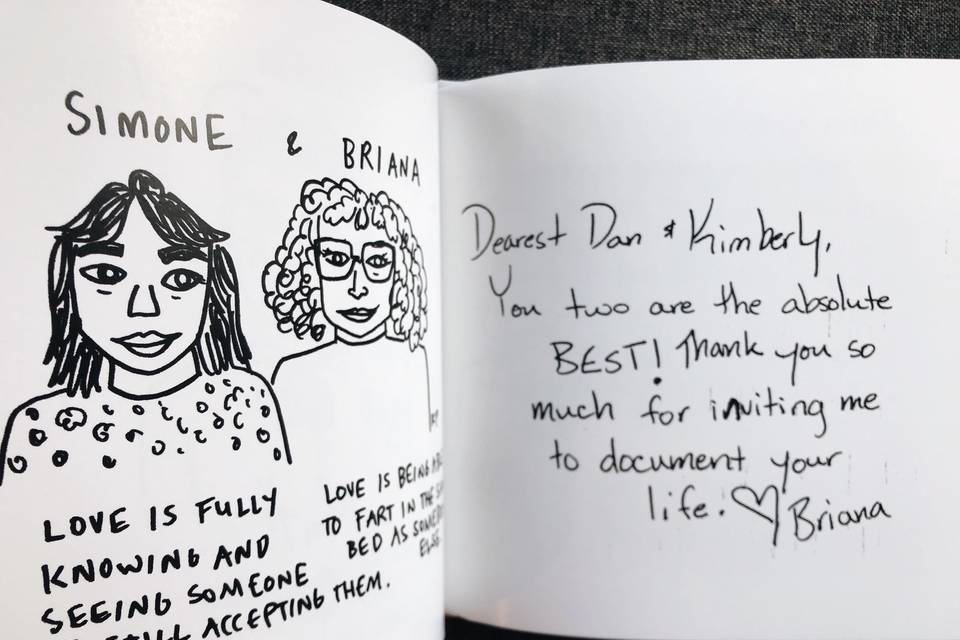 SIMONE & BRIANA
LOVE IS FULLY
KNOWING AND
SEEING SOMEONE
ACCEPTING THEM.
LOVE IS BEING
TO FART IN THE
BED AS
Dearest Dan & Kimberly,
You two are the absolute
BEST! Thank you so
much for inviting me
to document your
life. ♡ Briana